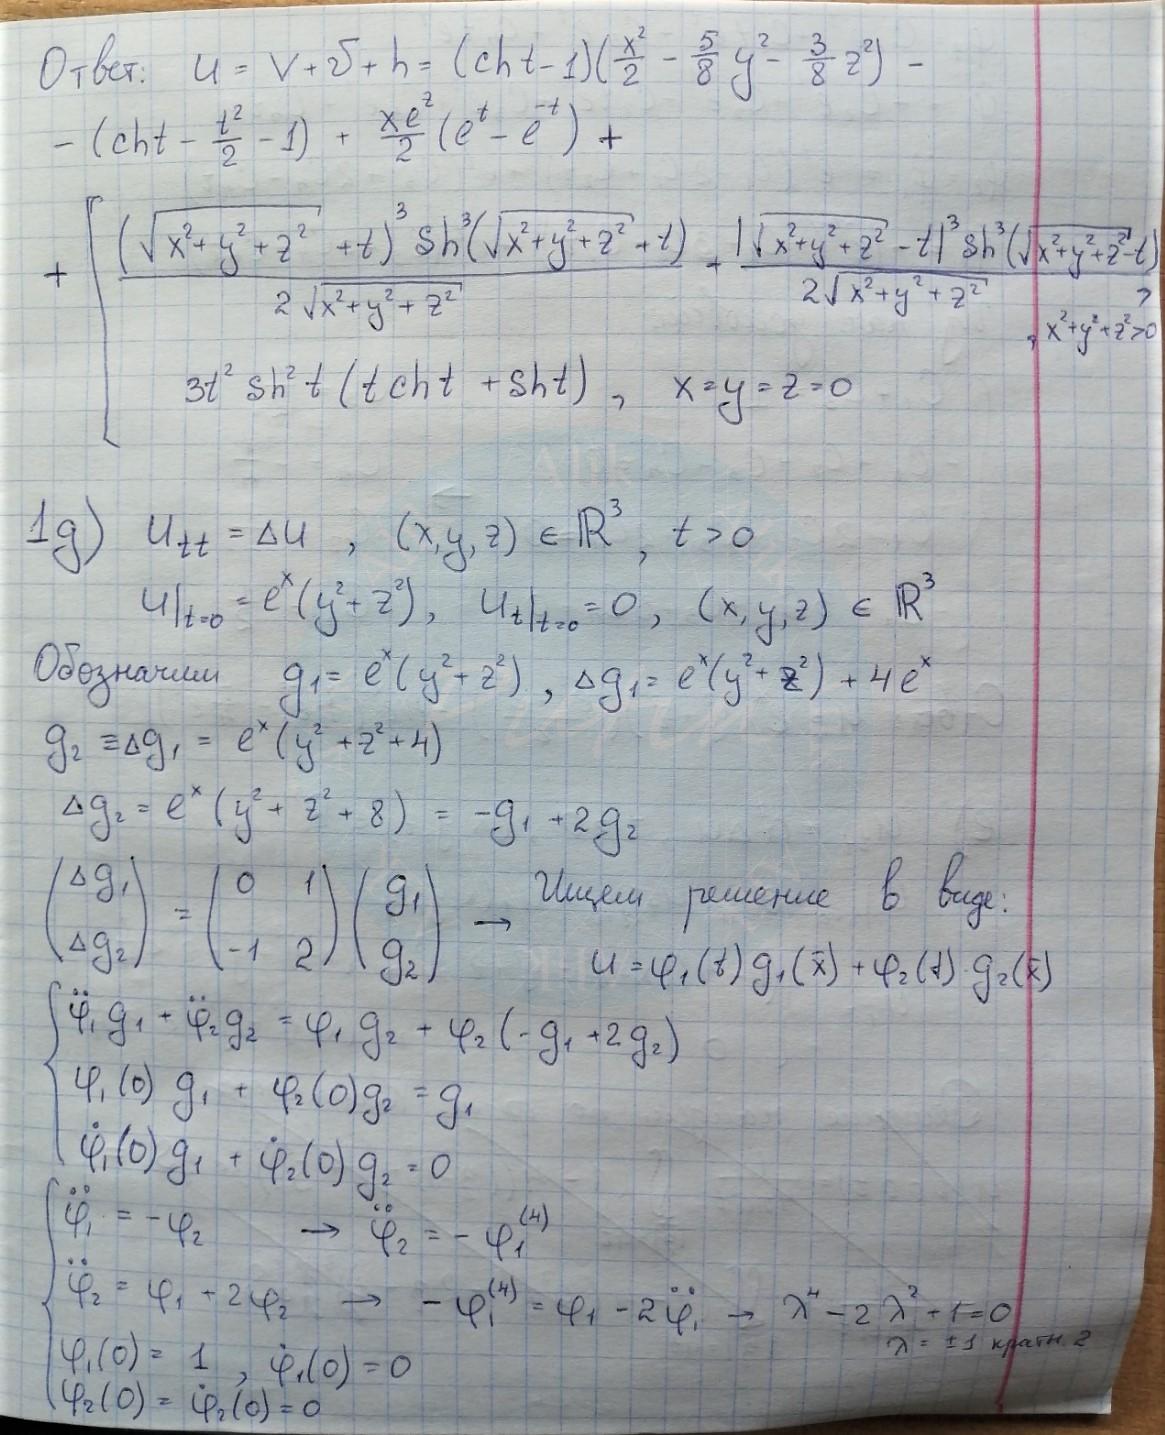 Ответ: u = v + v + h = (ch t - 1)(x²/2 - 5/8 y² - 3/8 z²) -
- (ch t - t²/2 - 1) + xe^z/2 (e^t - e^-t) +
+ [ (√(x²+y²+z²) + t)³ sh³(√(x²+y²+z²) + t) / 2√(x²+y²+z²) + |√(x²+y²+z²) - t|³ sh³(√(x²+y²+z²) - t) / 2√(x²+y²+z²) ,
, x²+y²+z²>0
3t² sh² t (t ch t + sh t) , x=y=z=0
1g) u_tt = Δu , (x,y,z) ∈ ℝ³, t > 0
u|t=0 = e^x (y²+z²), u_t|t=0 = 0, (x,y,z) ∈ ℝ³
Обозначим g₁ = e^x (y²+z²), Δg₁ = e^x (y²+z²) + 4e^x
g₂ ≡ Δg₁ = e^x (y²+z²+4)
Δg₂ = e^x (y² + z² + 8) = -g₁ + 2g₂
(Δg₁ Δg₂) = (0 1 -1 2) (g₁ g₂) → Ищем решение в виде:
u = φ₁(t) g₁(x̄) + φ₂(t)·g₂(x̄)
φ̈₁ g₁ + φ̈₂ g₂ = φ₁ g₂ + φ₂ (-g₁ + 2g₂)
φ₁(0) g₁ + φ₂(0) g₂ = g₁
φ̇₁(0) g₁ + φ̇₂(0) g₂ = 0
φ̈₁ = -φ₂ → φ̈₂ = -φ₁⁽⁴⁾
φ̈₂ = φ₁ + 2φ₂ → -φ₁⁽⁴⁾ = φ₁ - 2φ̈₁ → λ⁴ - 2λ² + 1 = 0
λ = ±1 кратн. 2
φ₁(0) = 1 , φ̇₁(0) = 0
φ₂(0) = φ̇₂(0) = 0